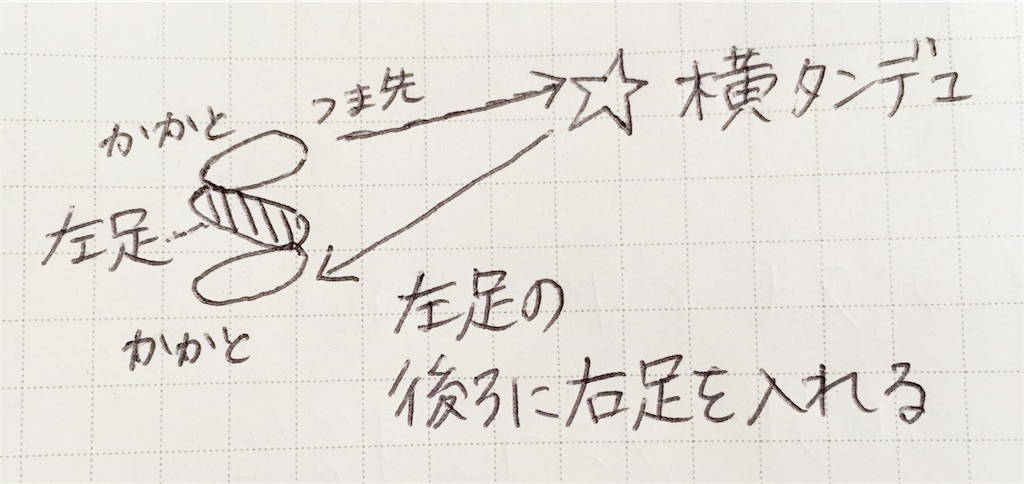 つま先
横タンデュ
かかと
左足
かかと
左足の
後ろに右足を入れる